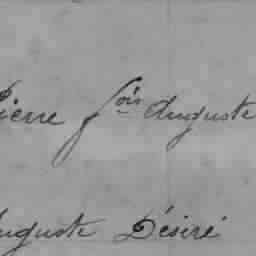 Pierre fois Auguste
Auguste Désiré